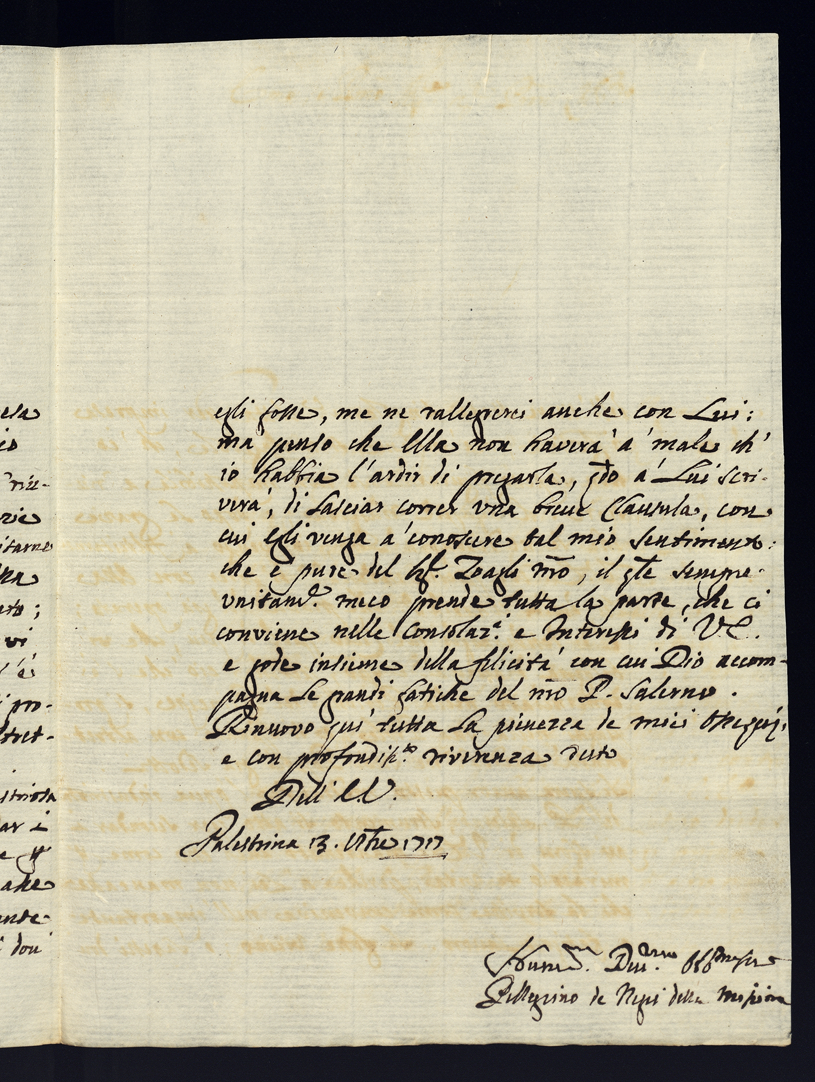 egli fosse, me ne rallegrerei anche con Lui:
ma penso che Ella non haverà à male ch'
io habbia l'ardir di pregarla, qdo à Lui scri-
verà, di lasciar correr una breve Clausula, con
cui Egli venga à conoscere tal mio sentimento:
che è pure del Sigr. Zoagli nro, il qle sempre
unitamte. meco prende tutta la parte, che ci
conviene nelle Consolazi. e Interessi di V.E.
e gode insieme della felicità con cui Dio accom-
pagna le grandi fatiche del nro P. Salerno.
Rinuovo qui tutta la pienezza de miei Ossequi,
e con profondissma riverenza resto
Dell' E.V.
Palestrina 13. 1717
Humilmo. Devmo. Obbmo Sere
Pellegrino de Negri della Missione